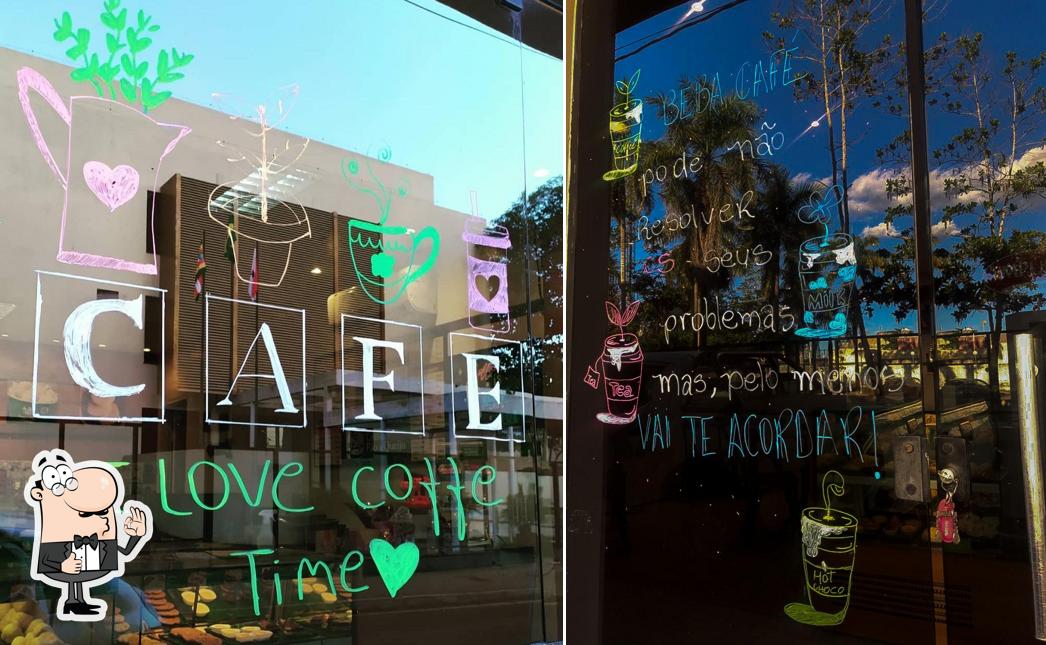 CAFE
I LOVE coffe
Time
BEBA CAFÉ
pode não
Resolver
os seus
problemas
mas, pelo menos
VAI TE ACORDAR!
Milk
Tea
HOT
CHOCO